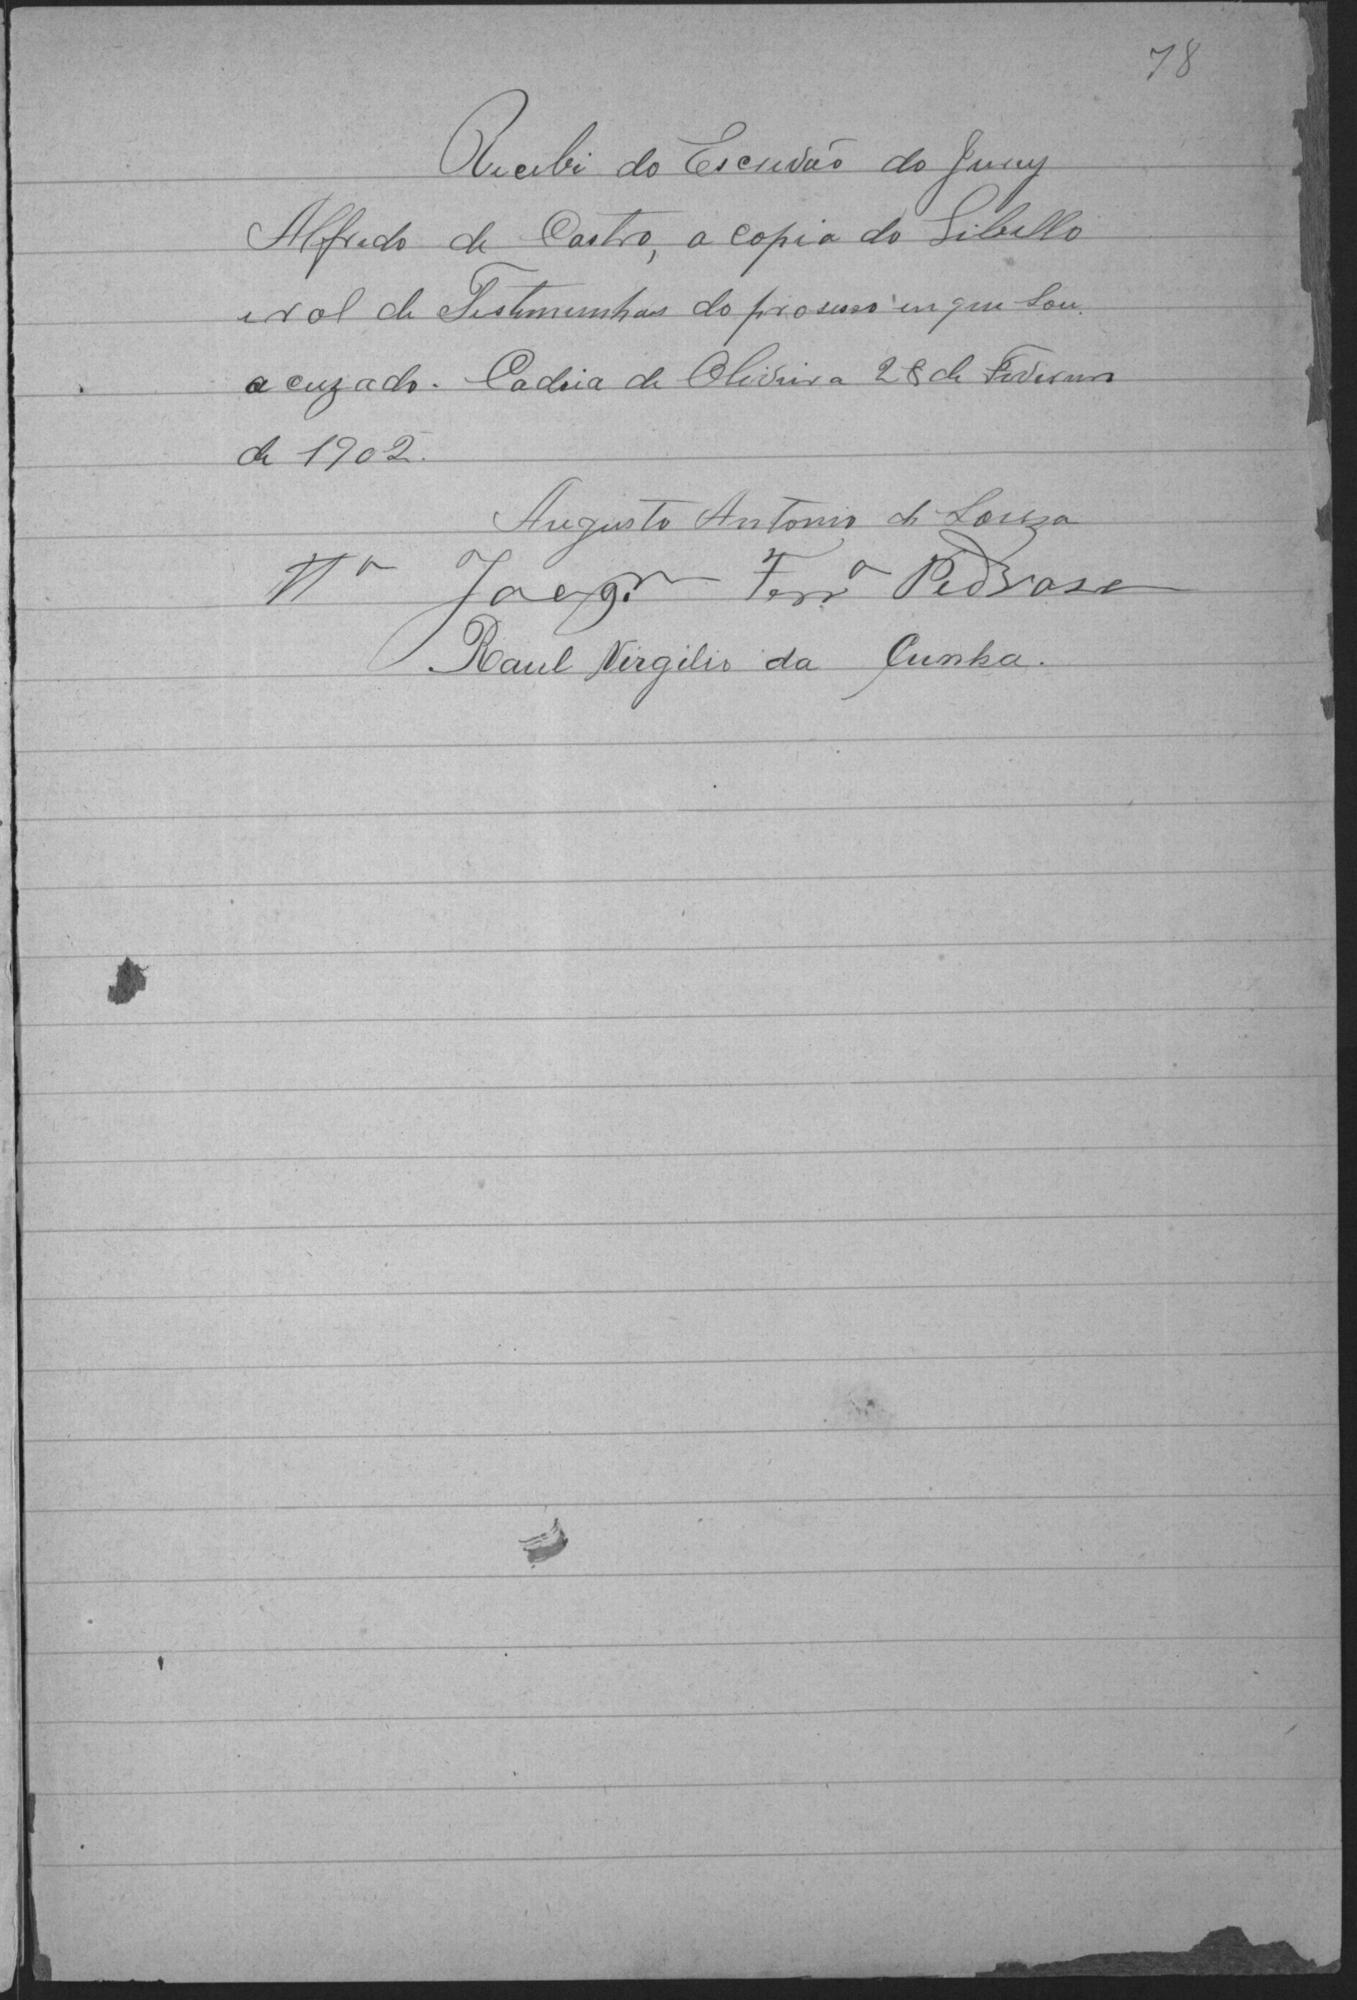 78
Recebi do Escrivão do Jury
Alfredo de Castro, a copia do Libello
e rol de Testemunhas do prosesso em que sou
acuzado. Cadeia de Oliveira 28 de Fevereiro
de 1902.
Augusto Antonio de Souza
Tª Joaqm Ferrª Pedrosa
Raul Virgilio da Cunha.